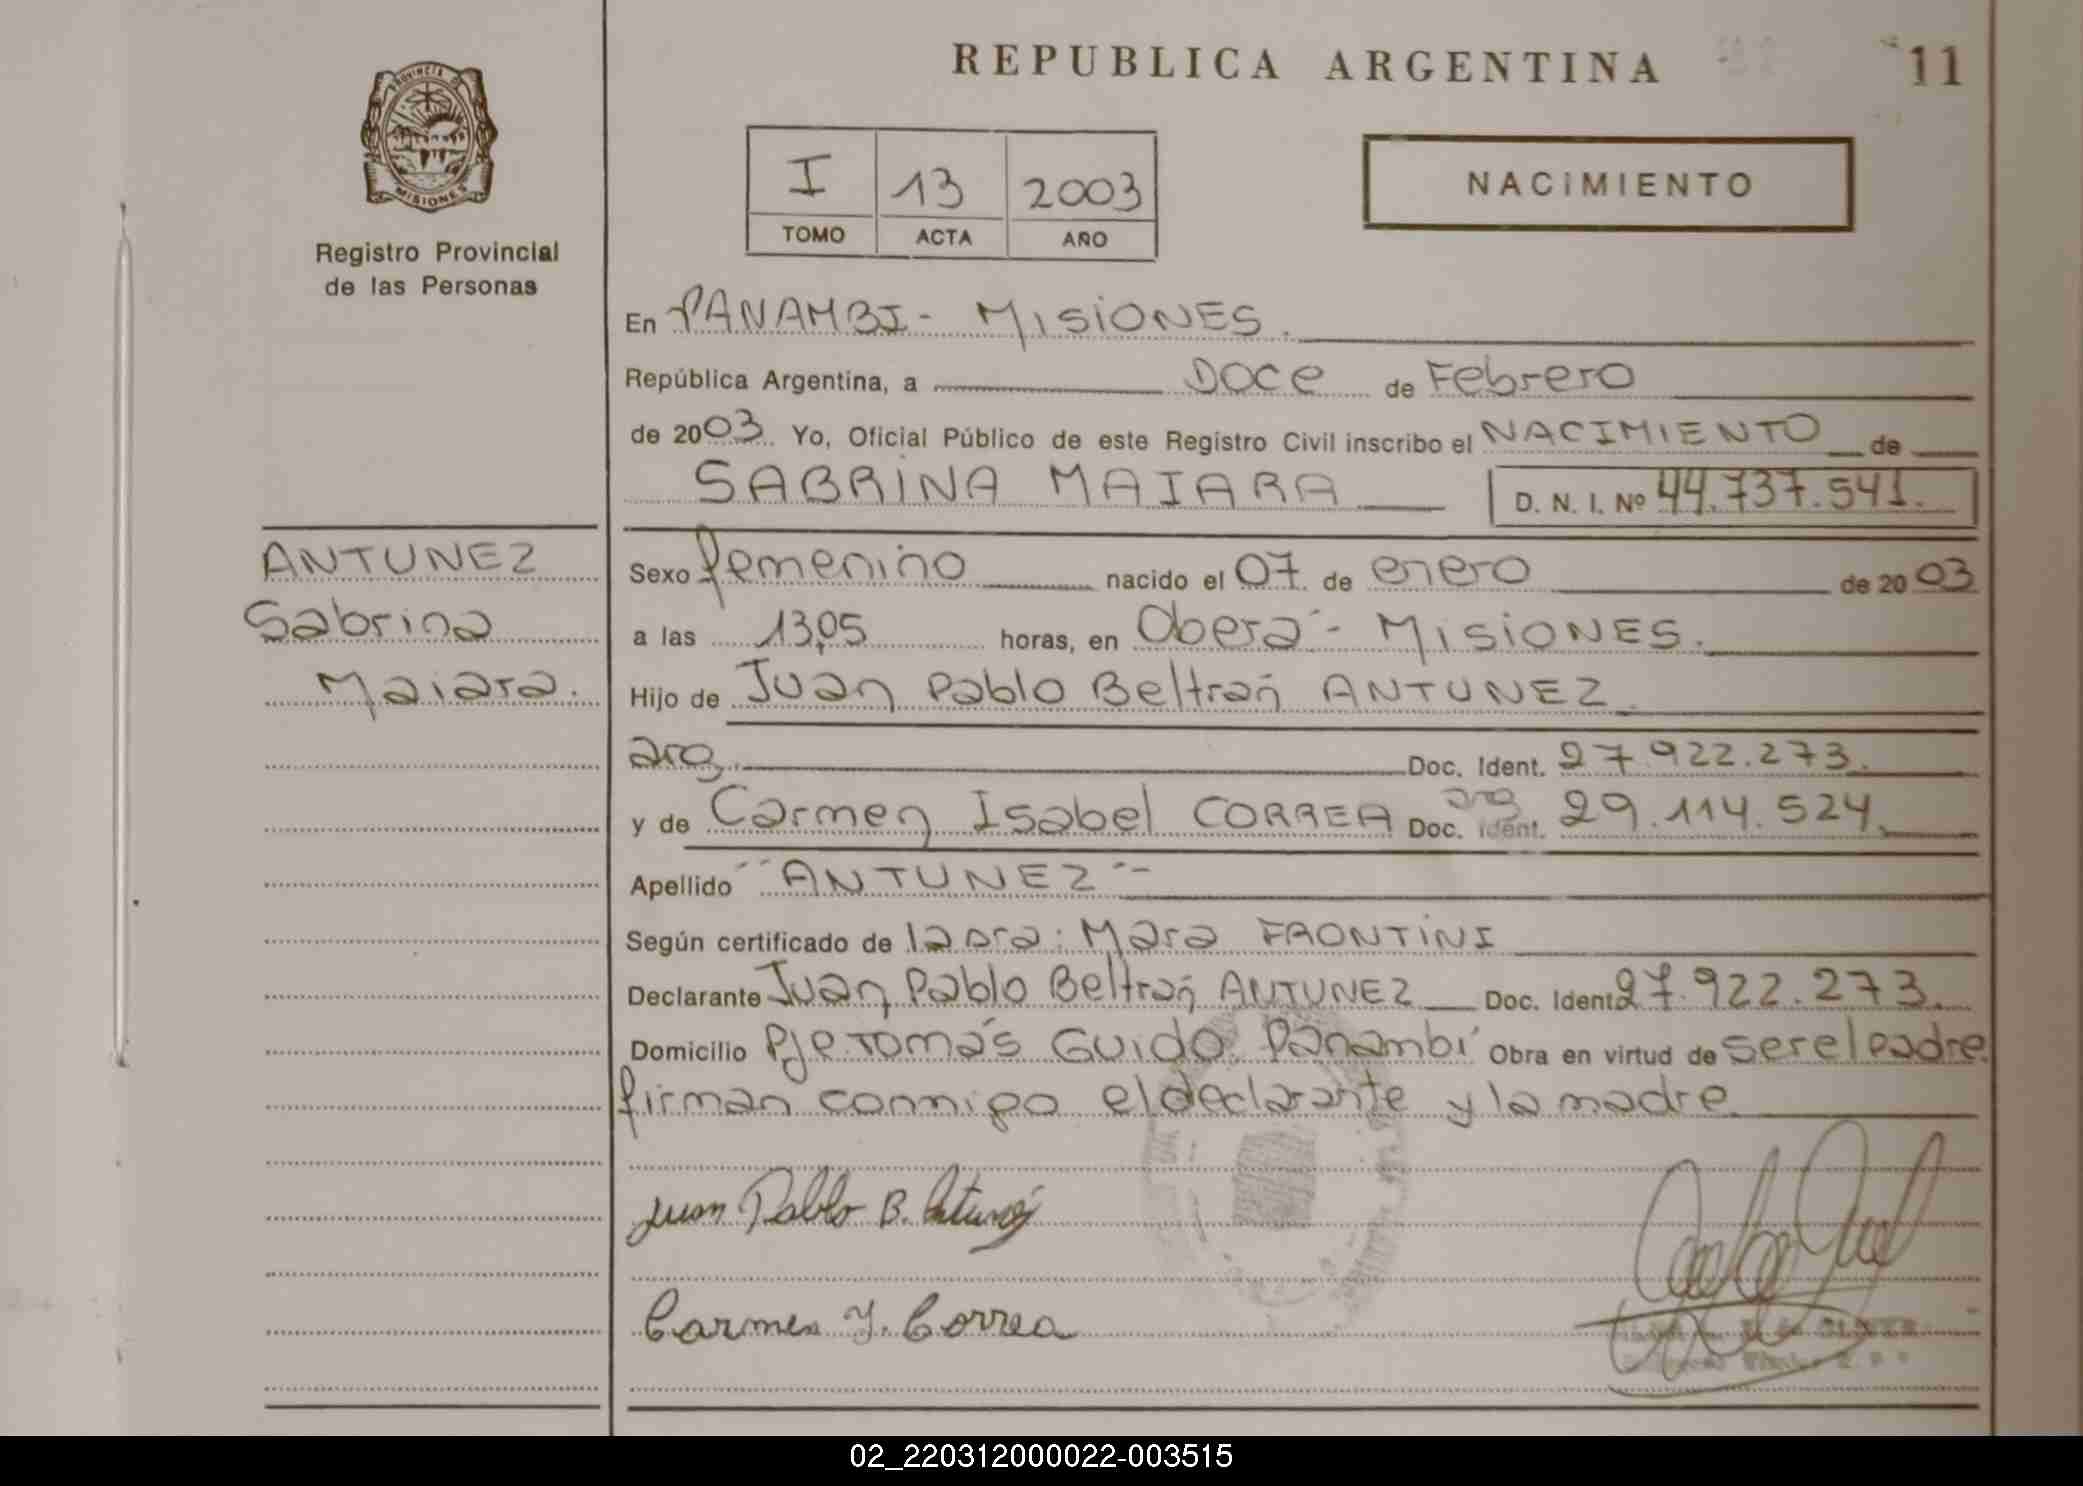 REPUBLICA ARGENTINA
11
PROVINCIA DE
MISIONES
Registro Provincial
de las Personas
I 13 2003
TOMO ACTA AÑO
NACIMIENTO
En PANAMBI - MISIONES.
República Argentina, a DOCE de Febrero
de 2003. Yo, Oficial Público de este Registro Civil inscribo el NACIMIENTO de
SABRINA MAIARA D. N. I. Nº 44.737.541.
ANTUNEZ
Sabrina
Maiara.
Sexo femenino nacido el 07 de enero de 2003
a las 13,05 horas, en Oberá - MISIONES.
Hijo de Juan Pablo Beltrán ANTUNEZ.
arg. Doc. Ident. 27.922.273.
y de Carmen Isabel CORREA arg Doc. Ident. 29.114.524.
Apellido "ANTUNEZ"-
Según certificado de la Dra: Mara FRONTINI
Declarante Juan Pablo Beltrán ANTUNEZ Doc. Ident 27.922.273.
Domicilio Pje. Tomás Guido. Panambí Obra en virtud de ser el padre.
firman conmigo el declarante y la madre.
Juan Pablo B. Antunez
Carmen I. Correa
02_220312000022-003515